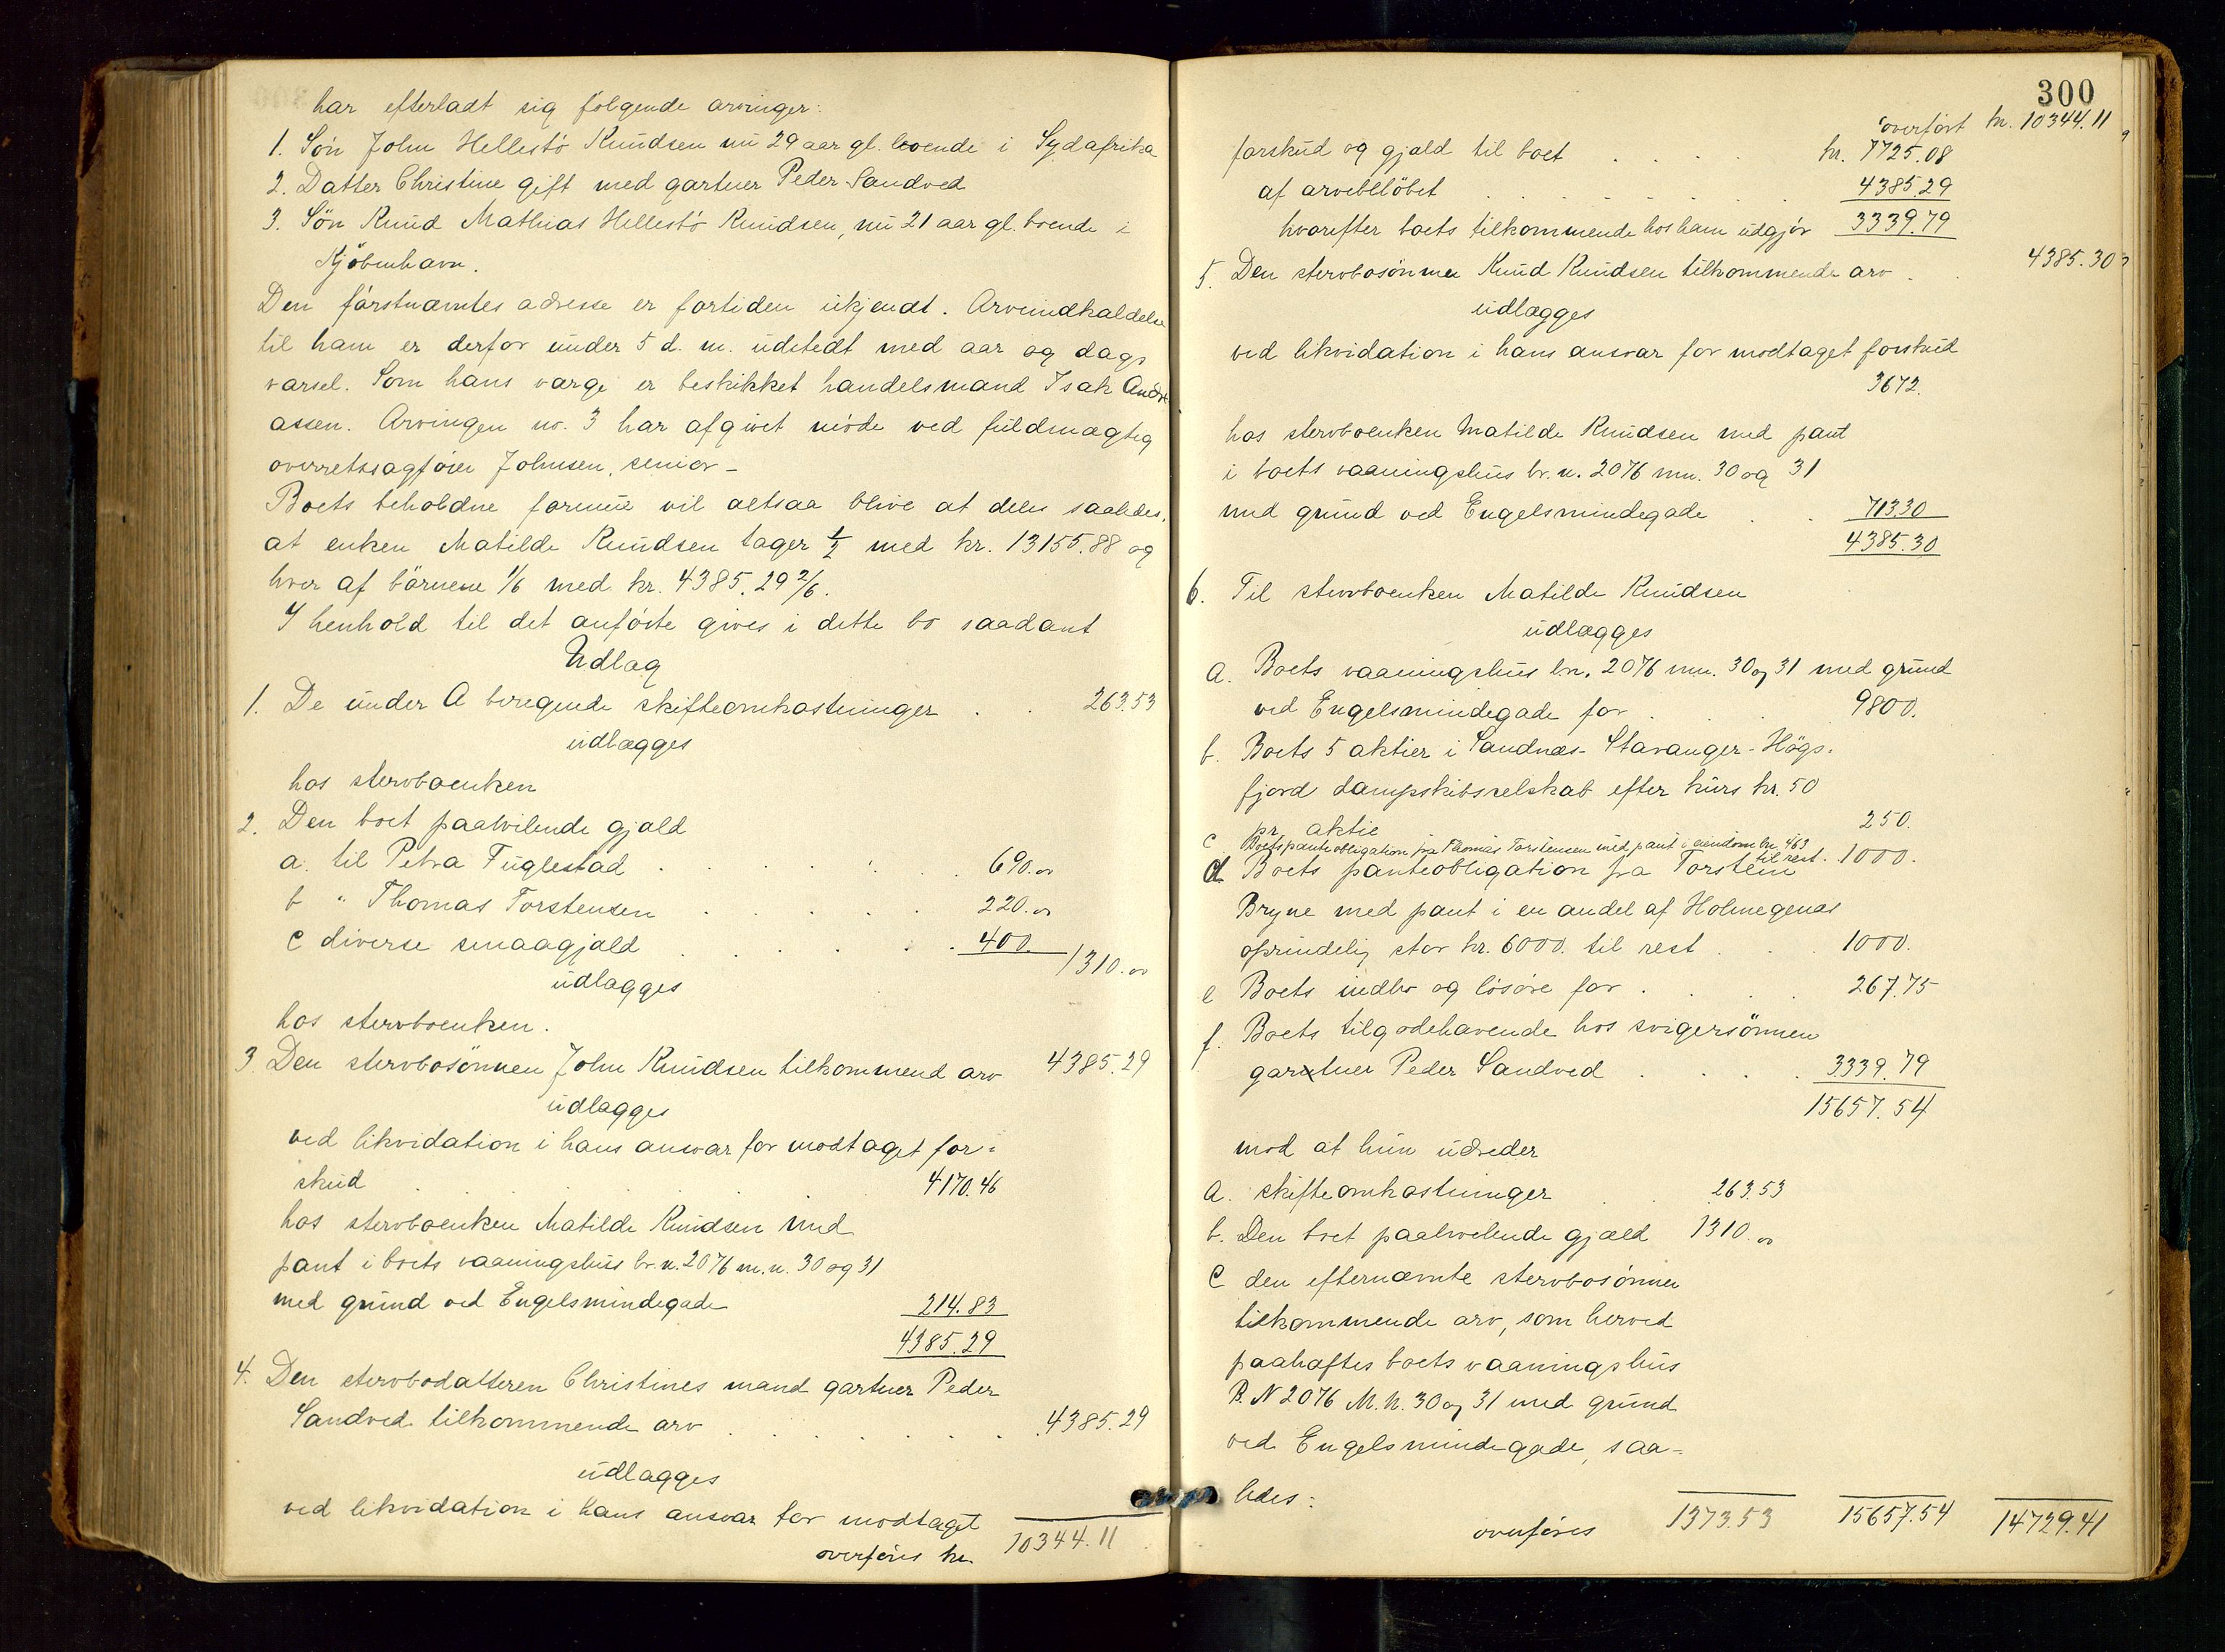 har efterladt sig følgende arvinger:
1. Søn John Hellestö Knudsen nu 29 aar gl. boende i Sydafrika
2. Datter Christine gift med gartner Peder Sandved
3. Søn Knud Mathias Hellestö Knudsen, nu 21 aar gl. boende i
Kjöbenhavn.
Den förstnævntes adresse er fortiden ukjendt. Arveindkaldelse
til ham er derfor under 5 d. m. udstedt med aar og dags
varsel. Som hans værge er beskikket handelsmand Isak Andre
assen. Arvingen no. 3 har afgivet möde ved fuldmægtig
overretssagförer Johnsen, senior –
Boets beholdne formue vil altsaa blive at deles saaledes,
at enken Matilde Knudsen tager ½ med kr. 13155.88 og
hver af börnene 1/6 med kr. 4385.29 2/6.
I henhold til det anförte gives i dette bo saadant
Udlæg
1. De under A beregnede skifteomkostninger . . 263.53
udlægges
hos stervboenken
2. Den boet paahvilende gjæld
a. til Petra Fuglestad . . . . 690.00
b " Thomas Torstensen . . . . . 220.00
c diverse smaagjæld . . . . . 400.
1310.00
udlægges
hos stervboenken.
3. Den stervbosönnen John Knudsen tilkommend arv 4385.29
udlægges
ved likvidation i hans ansvar for modtaget for-
skud . . . 4170.46
hos stervboenken Matilde Knudsen med
pant i boets vaaningshus br. n. 2076 m. n. 30 og 31
med grund ved Engelsmindegade 214.83
4385.29
4. Den stervbodatteren Christines mand gartner Peder
Sandved tilkommende arv . . . . . . . 4385.29
udlægges
ved likvidation i hans ansvar for modtaget
overføres kr. 10344.11
300
overført kr. 10344.11
forskud og gjæld til boet . . . . kr. 7725.08
af arvebelöbet . . . . . . . 4385.29
hvorefter boets tilkommende hos ham udgjör 3339.79
5. Den stervbosönnen Knud Knudsen tilkommende arv . . 4385.30
udlægges
ved likvidation i hans ansvar for modtaget forskud
3672.
hos stervboenken Matilde Knudsen med pant
i boets vaaningshus br. n. 2076 mn. 30 og 31
med grund ved Engelsmindegade . . 713.30
4385.30
6. Til stervboenken Matilde Knudsen
udlægges
a. Boets vaaningshus b.n. 2076 mn. 30 og 31 med grund
ved Engelsmindegade for . . . 9800.
b. Boets 5 aktier i Sandnæs-Stavanger-Högs-
fjord dampskibsselskab efter kurs kr. 50
pr. aktie 250.
c Boets panteobligation fra Thomas Torstensen med pant i eiendom bn. 463
til rest. 1000.
d Boets panteobligation fra Torstein
Bryne med pant i en andel af Holmegenæs
oprindelig stor kr. 6000. til rest . . 1000.
e Boets indbo og lösöre for . . . 267.75
f. Boets tilgodehavende hos svigersönnen
gartner Peder Sandved . . . . 3339.79
15657.54
mod at hun udreder
a. skifteomkostninger . . 263.53
b. Den boet paahvilende gjæld 1310.00
c den efternævnte stervbosönner
tilkommende arv, som herved
paahæftes boets vaaningshus
B. N 2076 M. N. 30 og 31 med grund
ved Engelsmindegade, saa-
ledes:
overføres 1373.53 15657.54 14729.41